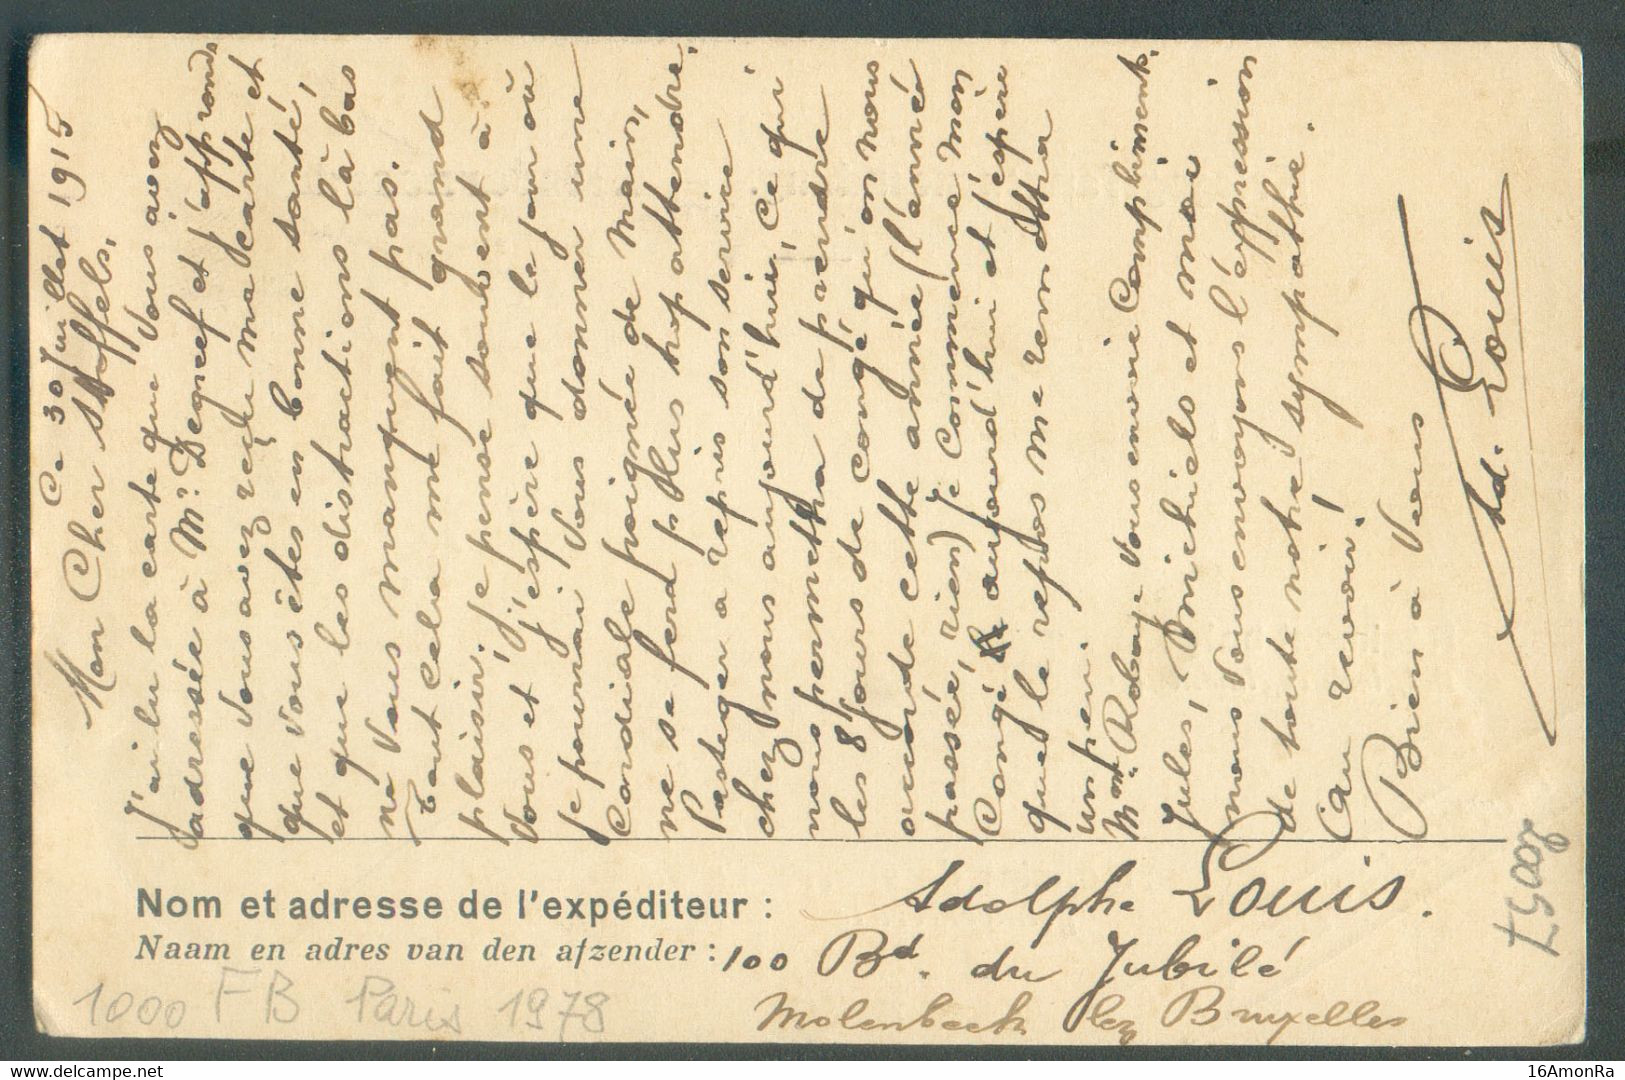 Ce 30 Juillet 1915
Mon Cher Stoffels,
J'ai lu la carte que Vous avez
adressée à Mr. Degreef et j'apprends
que Vous avez reçu ma carte et
que Vous êtes en bonne santé,
et que les distractions là bas
ne Vous manquent pas.
Tout cela me fait grand
plaisir. Je pense souvent à
Vous et j'espère que le jour où
je pourrai Vous donner une
Cordiale poignée de main,
ne se fera plus trop attendre.
a repris son service
chez nous aujourd'hui, ce qui
nous permettra de prendre
les 8 jours de congé qu'on nous
accorde cette année (l'année
passée, rien) Je Commence mon
Congé aujourd'hui et j'espère
que le repos me remettra
un peu.
Mme Robaye Vous envoie Compliments.
Jules, Michiels et moi
nous Vous envoyons l'expression
de toute notre sympathie.
Au revoir!
Bien à Vous
Ad. Louis
Nom et adresse de l'expéditeur : Adolphe Louis.
Naam en adres van den afzender : 100 Bd. du Jubilé
Molenbeek lez Bruxelles
1000 FB Paris 1978
delcampe.net
16AmonRa